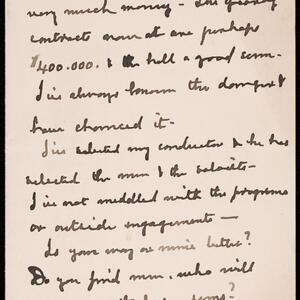 very much money - The
contracts now at are perhaps
$400.000. & the hall a good sum -
I've always known the danger &
have chanced it -
I've selected my conductor & he has
selected the men & the soloists -
I've not meddled with the programs
or outside engagements -
Is your way or mine better?
Do you find men, who will
sums?